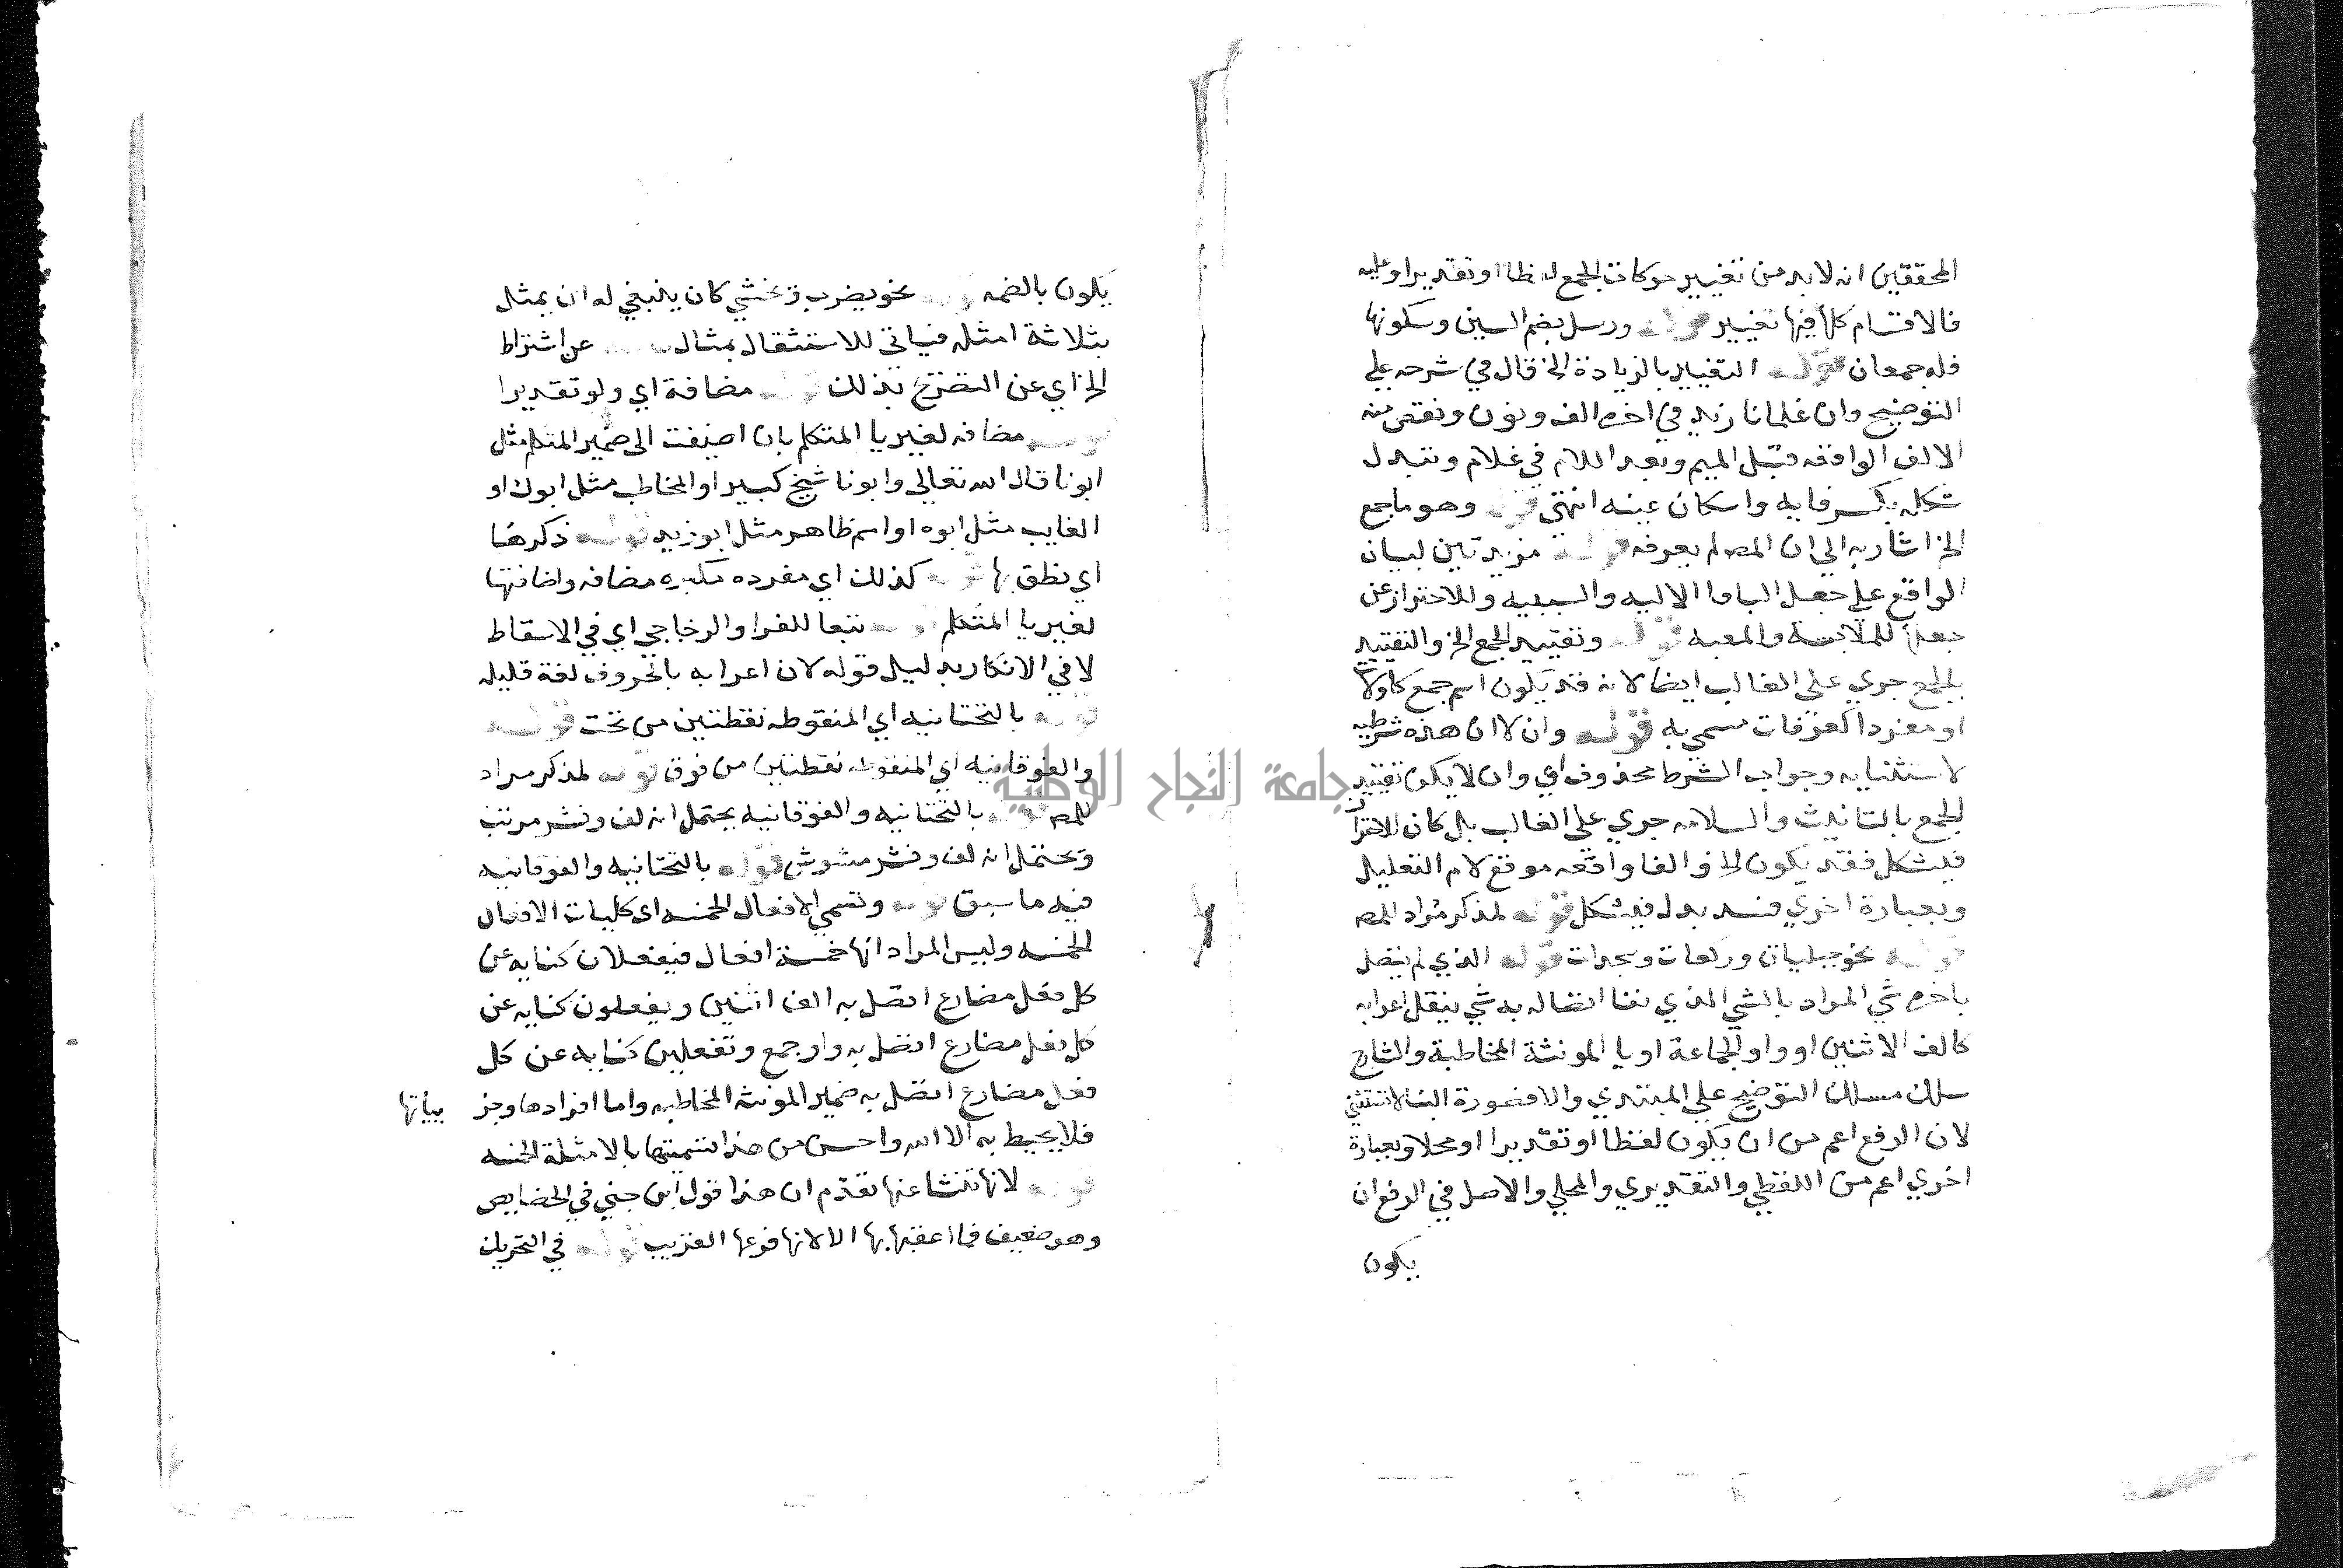 المحققين انه لا بد من تغيير حركات الجمع لفظا او تقديرا وعليه
فالاقسام كلها فيها تغيير قوله ورسل بضم السين وسكونها
فله جمعان قوله التغيير بالزيادة الخ قال في شرحه علي
التوضيح وان غلمانا زيد في اخره الف ونون ونقص منه
الالف الواقعه قبل الميم وبعد اللام في غلام وتبدل
شكله بكسر فايه واسكان عينه انتهي قوله وهو ما جمع
الخ اشار به الي ان المص لم يعرفه قوله مزيدتين لبيان
الواقع علي جعل البا الاليه والسببيه وللاحتراز عن
جعلها للملابسة والمعيه قوله وتقييد الجمع الخ والتقييد
بالجمع جري علي الغالب ايضا لانه قد يكون اسم جمع كاولات
او مفردا كعرفات مسمي به قوله وان لا ان هذه شرطيه
لا استثنايه وجواب الشرط محذوف اي وان لا يكن تقييد
الجمع بالتانيث والسلامه جري علي الغالب بل كان للاحتراز
فيشكل فقد يكون الخ والفا واقعه موقع لام التعليل
وبعبارة اخري فسد بدل فيشكل قوله لمذكر مراد المص
قوله نحو حبليات وركعات وسجدات قوله الذي لم يتصل
باخره شي المراد بالشي الذي نفا اتصاله به شي ينقل اعرابه
كالف الاثنين او واو الجماعة او يا المونثة المخاطبة والشارح
سلك مسلك التوضيح علي المبتدي والا فصورة البنا لا تستثني
لان الرفع اعم من ان يكون لفظا او تقديرا او محلا وبعبارة
اخري اعم من اللفظي والتقديري والمحلي والاصل في الرفع ان
يكون
يكون بالضمه قوله نحو يضرب ويخشي كان ينبغي له ان يمثل
بثلاثة امثله فياتي للاستثقال بمثال قوله عن اشتراط
الخ اي عن التصريح بذلك قوله مضافة اي ولو تقديرا
قوله مضافه لغير يا المتكلم بان اضيفت الي ضمير المتكلم مثل
ابونا قال الله تعالي وابونا شيخ كبير او المخاطب مثل ابوك او
الغايب مثل ابوه او اسم ظاهر مثل ابو زيد قوله ذكرها
اي نطق بها قوله كذلك اي مفرده مكبره مضافه واضافتها
لغير يا المتكلم قوله تبعا للفرا والزجاجي اي في الاسقاط
لا في الانكار بدليل قوله لان اعرابه بالحروف لغة قليله
قوله بالتحتانيه اي المنقوطه نقطتين من تحت قوله
والفوقانيه اي المنقوطه نقطتين من فوق قوله لمذكر مراد
المص قوله بالتحتانيه والفوقانيه يحتمل انه لف ونشر مرتب
ويحتمل انه لف ونشر مشوش قوله بالتحتانيه والفوقانيه
فيه ما سبق قوله وتسمي الافعال الخمسه اي كليات الافعال
الخمسه وليس المراد انها خمسة افعال فيفعلان كنايه عن
كل فعل مضارع اتصل به الف اثنين ويفعلون كنايه عن
كل فعل مضارع اتصل به واو جمع وتفعلين كنايه عن كل
فعل مضارع اتصل به ضمير المونثه المخاطبه واما افرادها وجز بياتها
فلا يحيط به الا الله واحسن من هذا تسميتها بالامثلة الخمسه
قوله لانها تنشا عنها تقدم ان هذا قول ابن جني في الخصايص
وهو ضعيف فما اعقبها بها الا لانها فرعها القريب قوله في التحريك
جامعة النجاح الوطنية